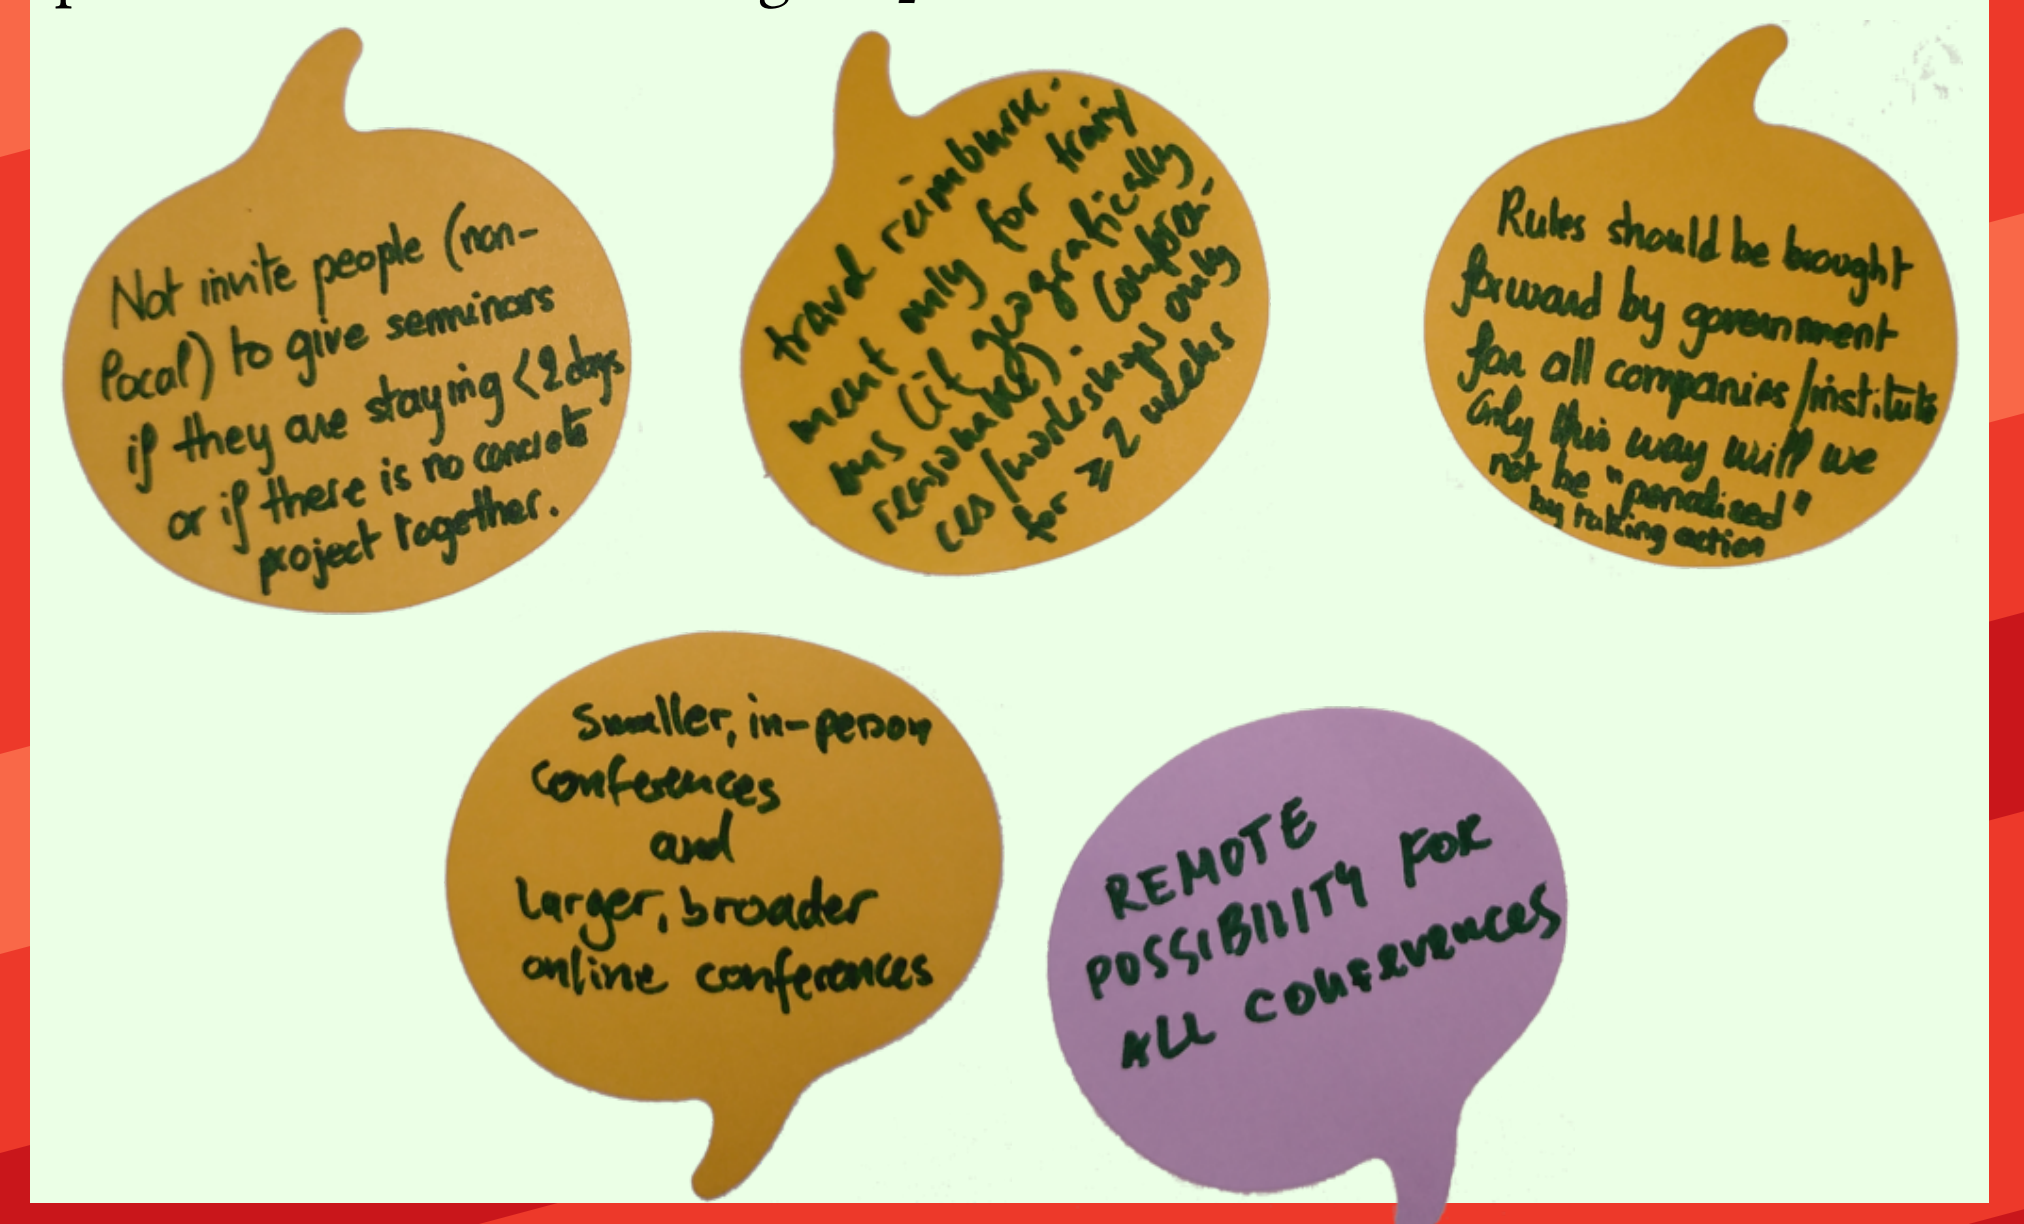 Not invite people (non-
local) to give seminars
if they are staying <2 days
or if there is no concrete
project together.
travel reimburse-
ment only for train/
bus (if geografically
reasonable). Conferen-
ces/workshops only
for ⩾ 2 weeks
Rules should be brought
forward by government
for all companies/institute
Only this way will we
not be "penalised"
by taking action
Smaller, in-person
Conferences
and
Larger, broader
online conferences
REMOTE
POSSIBILITY FOR
ALL CONFERENCES